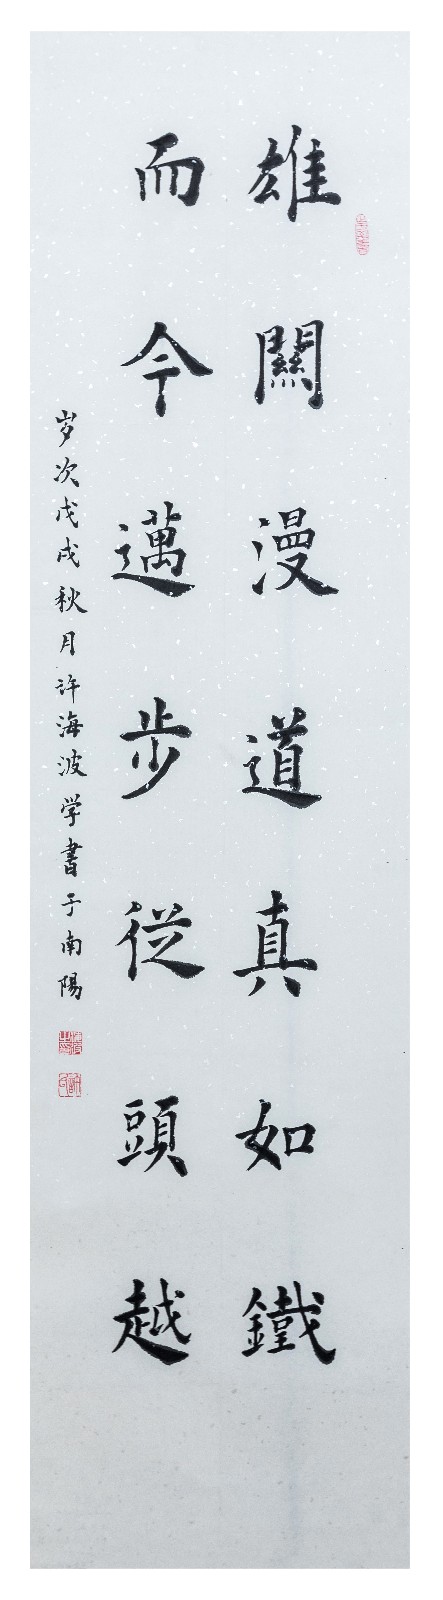 雄關漫道真如鐵
而今邁步從頭越
岁次戊戌秋月许海波学書于南陽